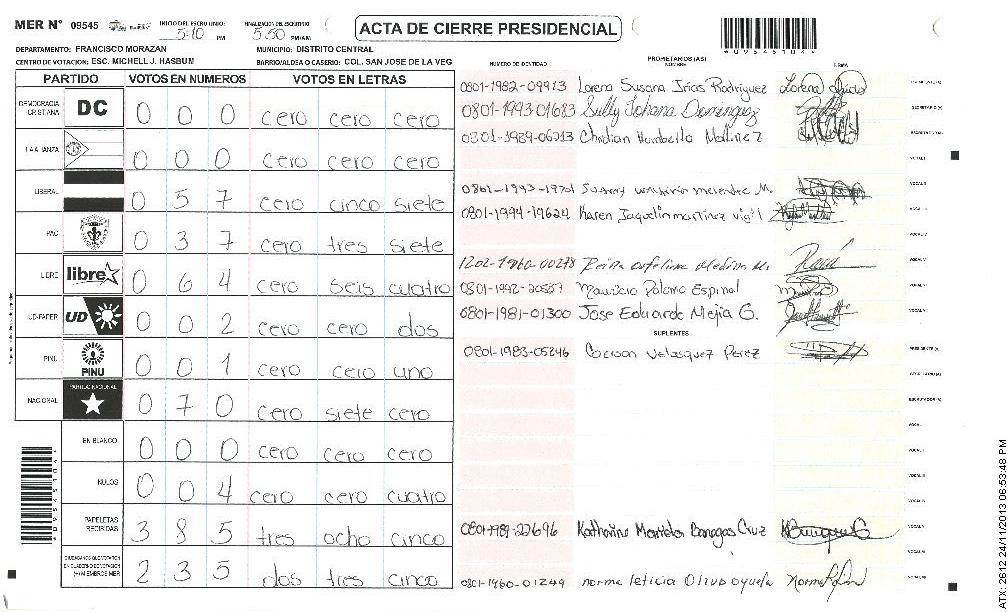 MER Nº 09545 INICIO DEL ESCRUTINIO: 5:10 PM FINALIZACION DEL ESCRUTINIO 5:50 PM/AM
ACTA DE CIERRE PRESIDENCIAL
*09545104*
DEPARTAMENTO: FRANCISCO MORAZAN MUNICIPIO: DISTRITO CENTRAL
CENTRO DE VOTACION: ESC. MICHELL J. HASBUM BARRIO/ALDEA O CASERIO: COL. SAN JOSE DE LA VEG
NUMERO DE IDENTIDAD PROPIETARIOS (AS) NOMBRE FIRMA
PARTIDO VOTOS EN NUMEROS VOTOS EN LETRAS
DEMOCRACIA CRISTIANA DC 0 0 0 cero cero cero
ALIANZA 0 0 0 cero cero cero
LIBERAL 0 5 7 cero cinco siete
PAC 0 3 7 cero tres siete
LIBRE libre 0 6 4 cero seis cuatro
UD-FAPER UD 0 0 2 cero cero dos
PINU PINU 0 0 1 cero cero uno
NACIONAL PARTIDO NACIONAL 0 7 0 cero siete cero
EN BLANCO 0 0 0 cero cero cero
NULOS 0 0 4 cero cero cuatro
PAPELETAS RECIBIDAS 3 8 5 tres ocho cinco
CIUDADANOS QUE VOTARON EN CUADERNO DE VOTACION (+) MIEMBROS MER 2 3 5 dos tres cinco
0801-1982-09913 Lorena Susana Irias Rodriguez
0801-1993-01683 Sully Johana Dominguez
0801-1989-06213 Christian Humberto Martinez
0801-1994-19624 Karen Jaquelin martinez vigil
Medina M.
Mauricio Palomo Espinal
0801-1981-01300 Jose Eduardo Mejia G.
SUPLENTES
0801-1983-05246 Gerson Velasquez Perez
0801-1989-22696 Katherine Banegas Cruz
0801-1960-01249 norma leticia
ATX 2612 24/11/2013 06:53:48 PM